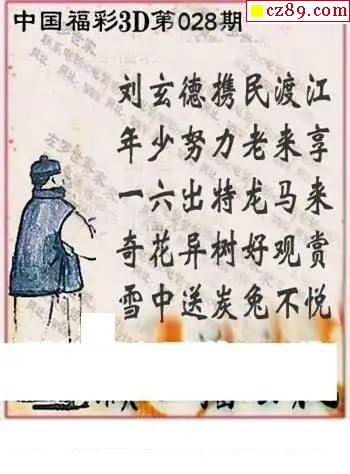 cz89.com
中国福彩3D第028期
刘玄德携民渡江
年少努力老来享
一六出特龙马来
奇花异树好观赏
雪中送炭兔不悦